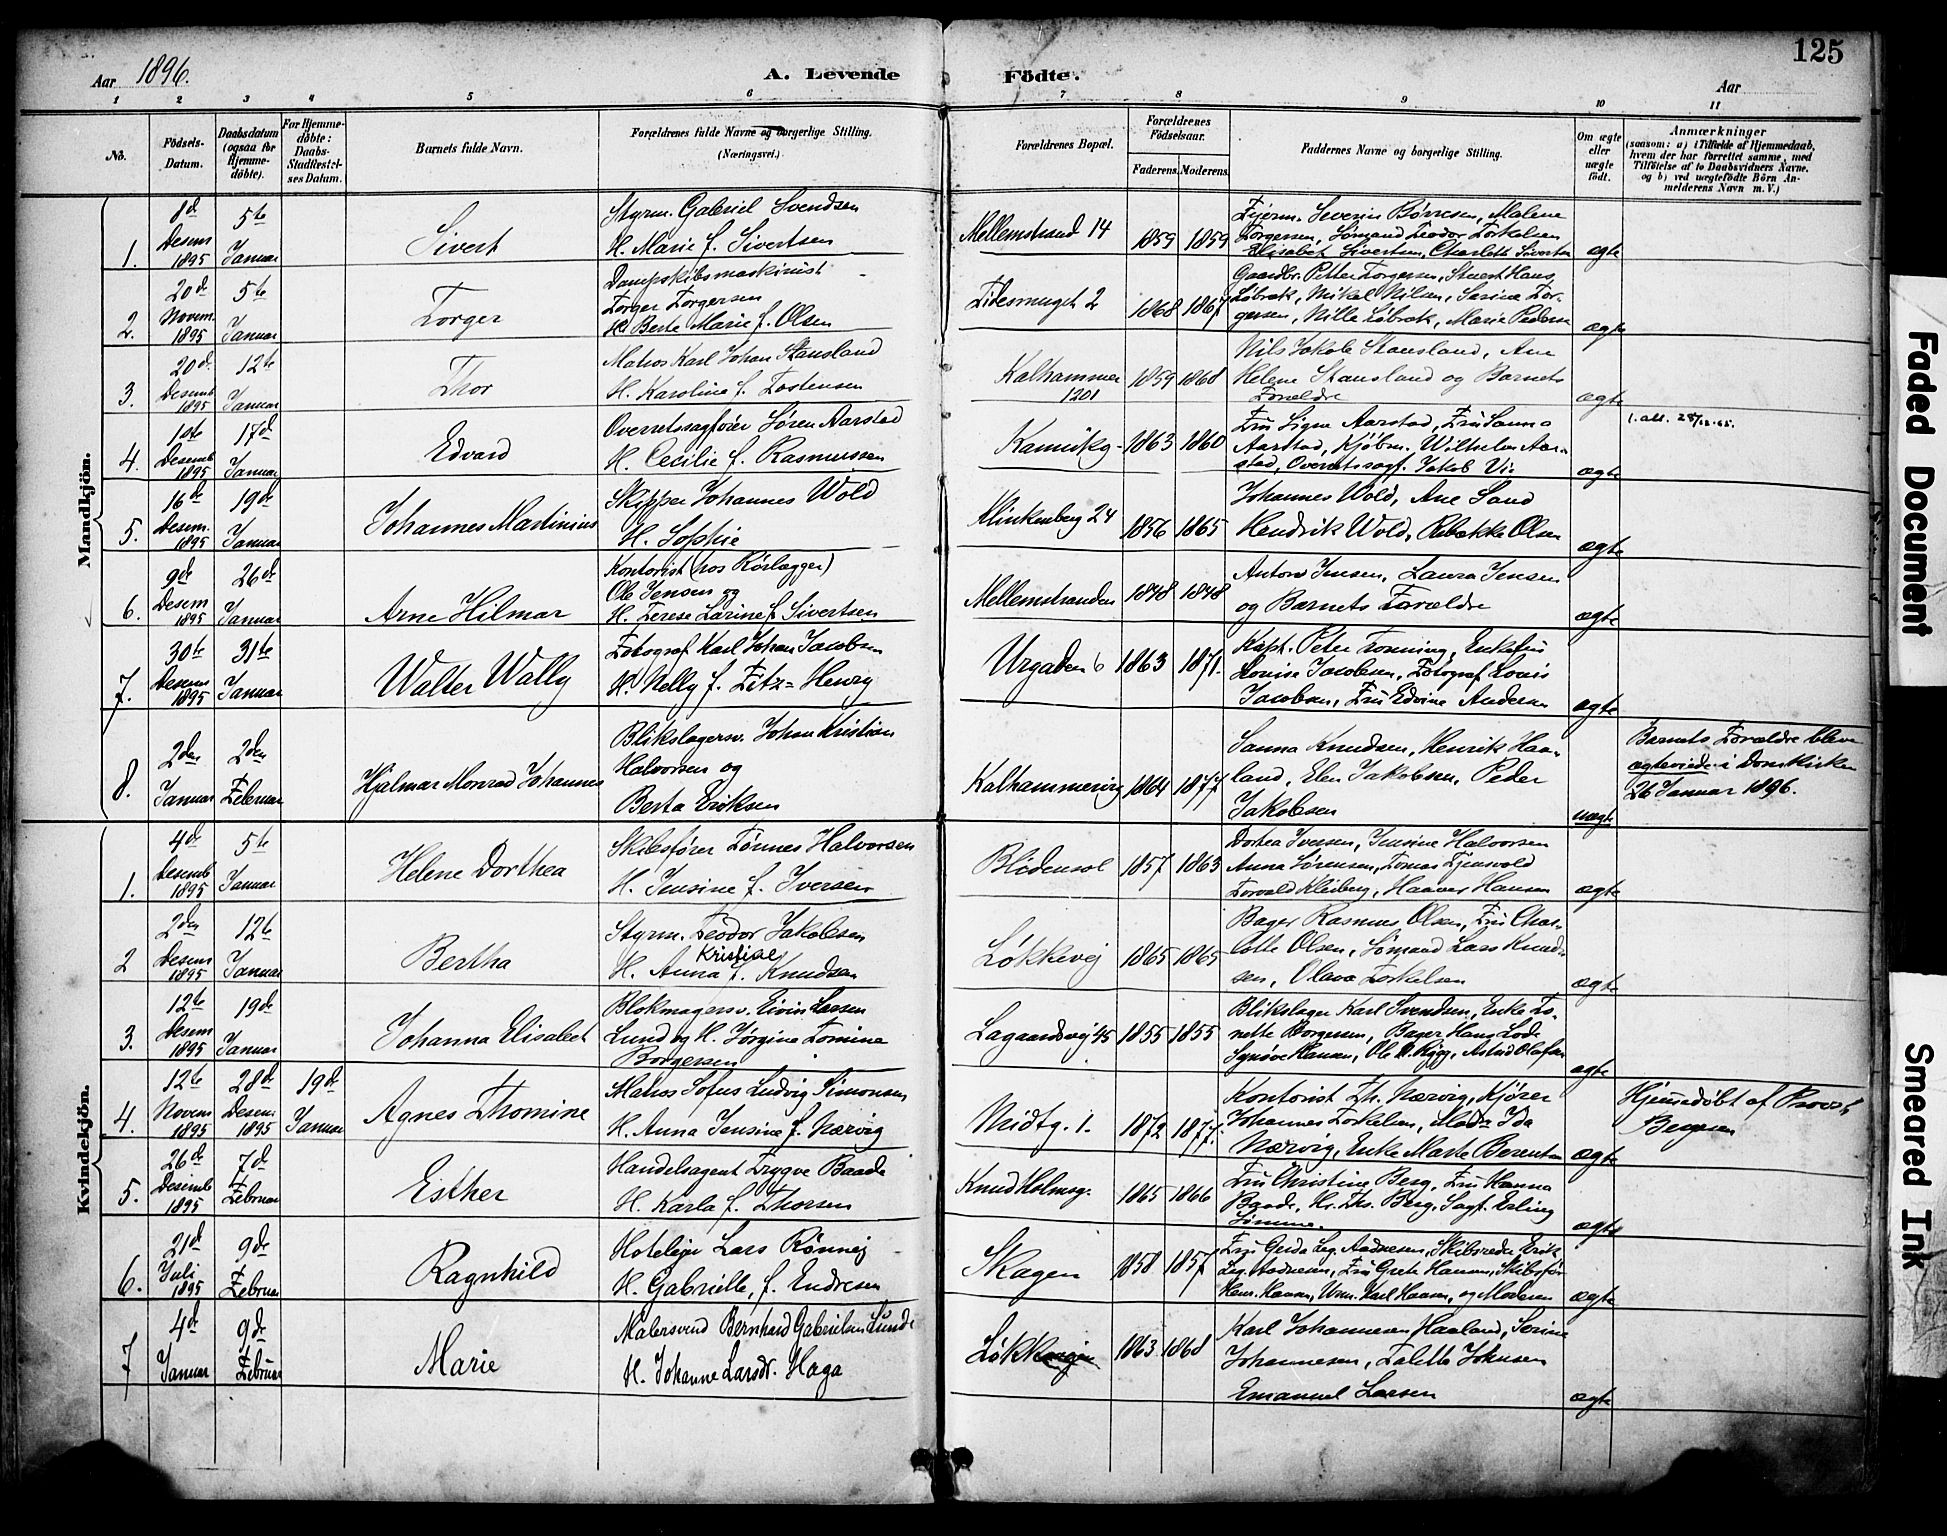 125
Aar 1896.
A. Levende Födte.
Aar
1 2 3 4 5 6 7 8 9 10 11
No.
Födsels-Datum.
Daabsdatum (ogsaa for Hjemme-döbte).
For Hjemme-döbte: Daabs-Stadfestel-ses Datum.
Barnets fulde Navn.
Forældrenes fulde Navne og borgerlige Stilling. (Næringsvei.)
Forældrenes Bopæl.
Forældrenes Födselsaar.
Faderens. Moderens.
Faddernes Navne og borgerlige Stilling.
Om ægte eller uægte födt.
Anmærkninger
(saasom: a) i Tilfælde af Hjemmedaab, hvem der har forrettet samme, med Tilföielse af to Daabsvidners Navne. og b) ved uægtefödte Börn An-melderens Navn m. V.)
Mandkjön.
1. 8d Desem 1895 5te Januar Sivert
Styrm. Gabriel Svendsen
H. Marie f. Sivertsen
Mellemstrand 14 1859 1859
Severin Børresen, Malene
Torgersen, Sømand Teodor Torkelsen
Elisabet Sivertsen, Charlotte Sivertsen ægte
2. 20de Novem. 1895 5te Januar Torger
Dampskibsmaskinist
Torger Torgersen
H. Berte Marie f. Olsen
Tidesmuget 2 1868 1867
Gaardbr. Petter Torgersen, Stuert Hans
Løbræk, Mikal Nilsen, Serine Tor-
gersen, Nille Løbræk, Marie Pederse ægte
3. 20d. Desemb 1895 12te Januar Thor
Matros Karl Johan Stausland
H. Karoline f. Tostensen
Kalhammer 1201 1859 1868
Nils Jakob Stausland, Ane
Helene Stausland og Barnets
Forældre ægte
4. 1ste Desemb 1895 17d Januar Edvard
Overretssagfører Søren Aarstad
H. Cecilie f. Rasmussen
Kannikg- 1863 1860
Fru Signe Aarstad, Fru Sanna
Aarstad, Kjøbm. Wilhelm Aar-
stad, Overretssagf. Jakob Vi- ægte
5. 16de Desem. 1895 19de Januar Johannes Martinius
Skipper Johannes Wold
H. Sophie
Klinkenberg 24 1856 1865
Johannes Wold, Ane Sand
Hendrik Wold, Rebekka Olsen ægte
6. 9de Desem 1895 26de Januar Arne Hilmar
Kontorist (hos Rørlægger)
Ole Jensen og
H. Terese Larine f. Sivertsen
Mellemstranden 1848 1848
Anton Jensen, Laura Jensen
og Barnets Forældre ægte
7. 30te Desem 1895 31te Januar Walter Wally
Fotograf Karl Johan Jacobsen
H. Nelly f. Fitz-Henry
Urgaden 6 1863 1871.
Kapt. Peter Tonning, Enkefru
Louise Jacobsen, Fotograf Louis
Jacobsen, Fru Edvine Andersen ægte
8. 2den Januar 2den Februar Hjalmar Monrad Johannes
Blikslagersv. Johan Kristian
Halvorsen og
Berta Eriksen
Kalhammervig 1864 1877
Sanna Knudsen, Henrik Haa-
land, Elen Jakobsen, Peder
Jakobsen uægte
Barnets Forældre bleve
ægteviede i Domkirken
26 Januar 1896.
Kvindekjön.
1. 4d Desemb 1895 5te Januar Helene Dorthea
Skibsfører Tønnes Halvorsen
H. Jensine f. Iversen
Blidensol 1857 1863
Dortea Iversen, Jensine Halvorsen
Anna Sørensen, Tomas Tjensvold
Torvald Kleiberg, Haaver Hansen ægte
2 2den Desem 1895 12te Januar Bertha
Styrm. Teodor Jakobsen
Kristine
H. Anna f. Knudsen
Løkkevej 1865 1865
Bager Rasmus Olsen, Fru Char-
lotte Olsen, Sømand Lars Knud-
sen, Olava Torkelsen ægte
3. 12te Desem 1895 19de Januar Johanna Elisabet
Blokmagersv. Eivin Larsen
Lund og H. Jørgine Tomine
Borgersen
Lagaardsvej 45 1855 1855
Blikslager Karl Svendsen, Enke To-
nette Borgersen, Bager Hans Lode
Synøve Hansen, Ole A. Rygg, Astrid Olafsen ægte
4. 12te Novem 1895 28de Desem. 1895 19de Januar Agnes Thomine
Matros Sofus Ludvig Simonsen
H. Anna Jensine f. Nærvig
Nidtg. 1. 1872 1877.
Kontorist Th. Nærvig, Kjører
Johannes Torkelsen, Ida
Nærvig, Enke Marte Berentsen ægte
Hjemmedøbt af Provst
5. 26de Desemb 1895 7d Februar Esther
Handelsagent Trygve Baade
H. Karla f. Thorsen
Knud Holmsg. 1865 1866
Fru Christine Berg, Fru Hanna
Baade, Hr. Ths. Berg, Sagf. Erling
Sømme. ægte
6. 21d Juli 1895 9de Februar Ragnhild
Hoteleier Lars Rönnej
H. Gabrielle, f. Endresen
Skagen 1858 1857
Fru Gerda Leg. Andresen, Skibsreder Erik
Leg. Andresen, Fru Grete Hansen, Skibsfør
Hansen, Karl Hansen, og Moderen ægte
7 4d Januar 9de Februar Marie
Malersvend Bernhard Gabrielsen Sunde
H. Johanne Larsdr. Haga
Løkk 1863 1868
Karl Johannesen Haaland, Serine
Johannesen, Talette Johnsen
Emanuel Larsen ægte
Faded Document
Smeared Ink